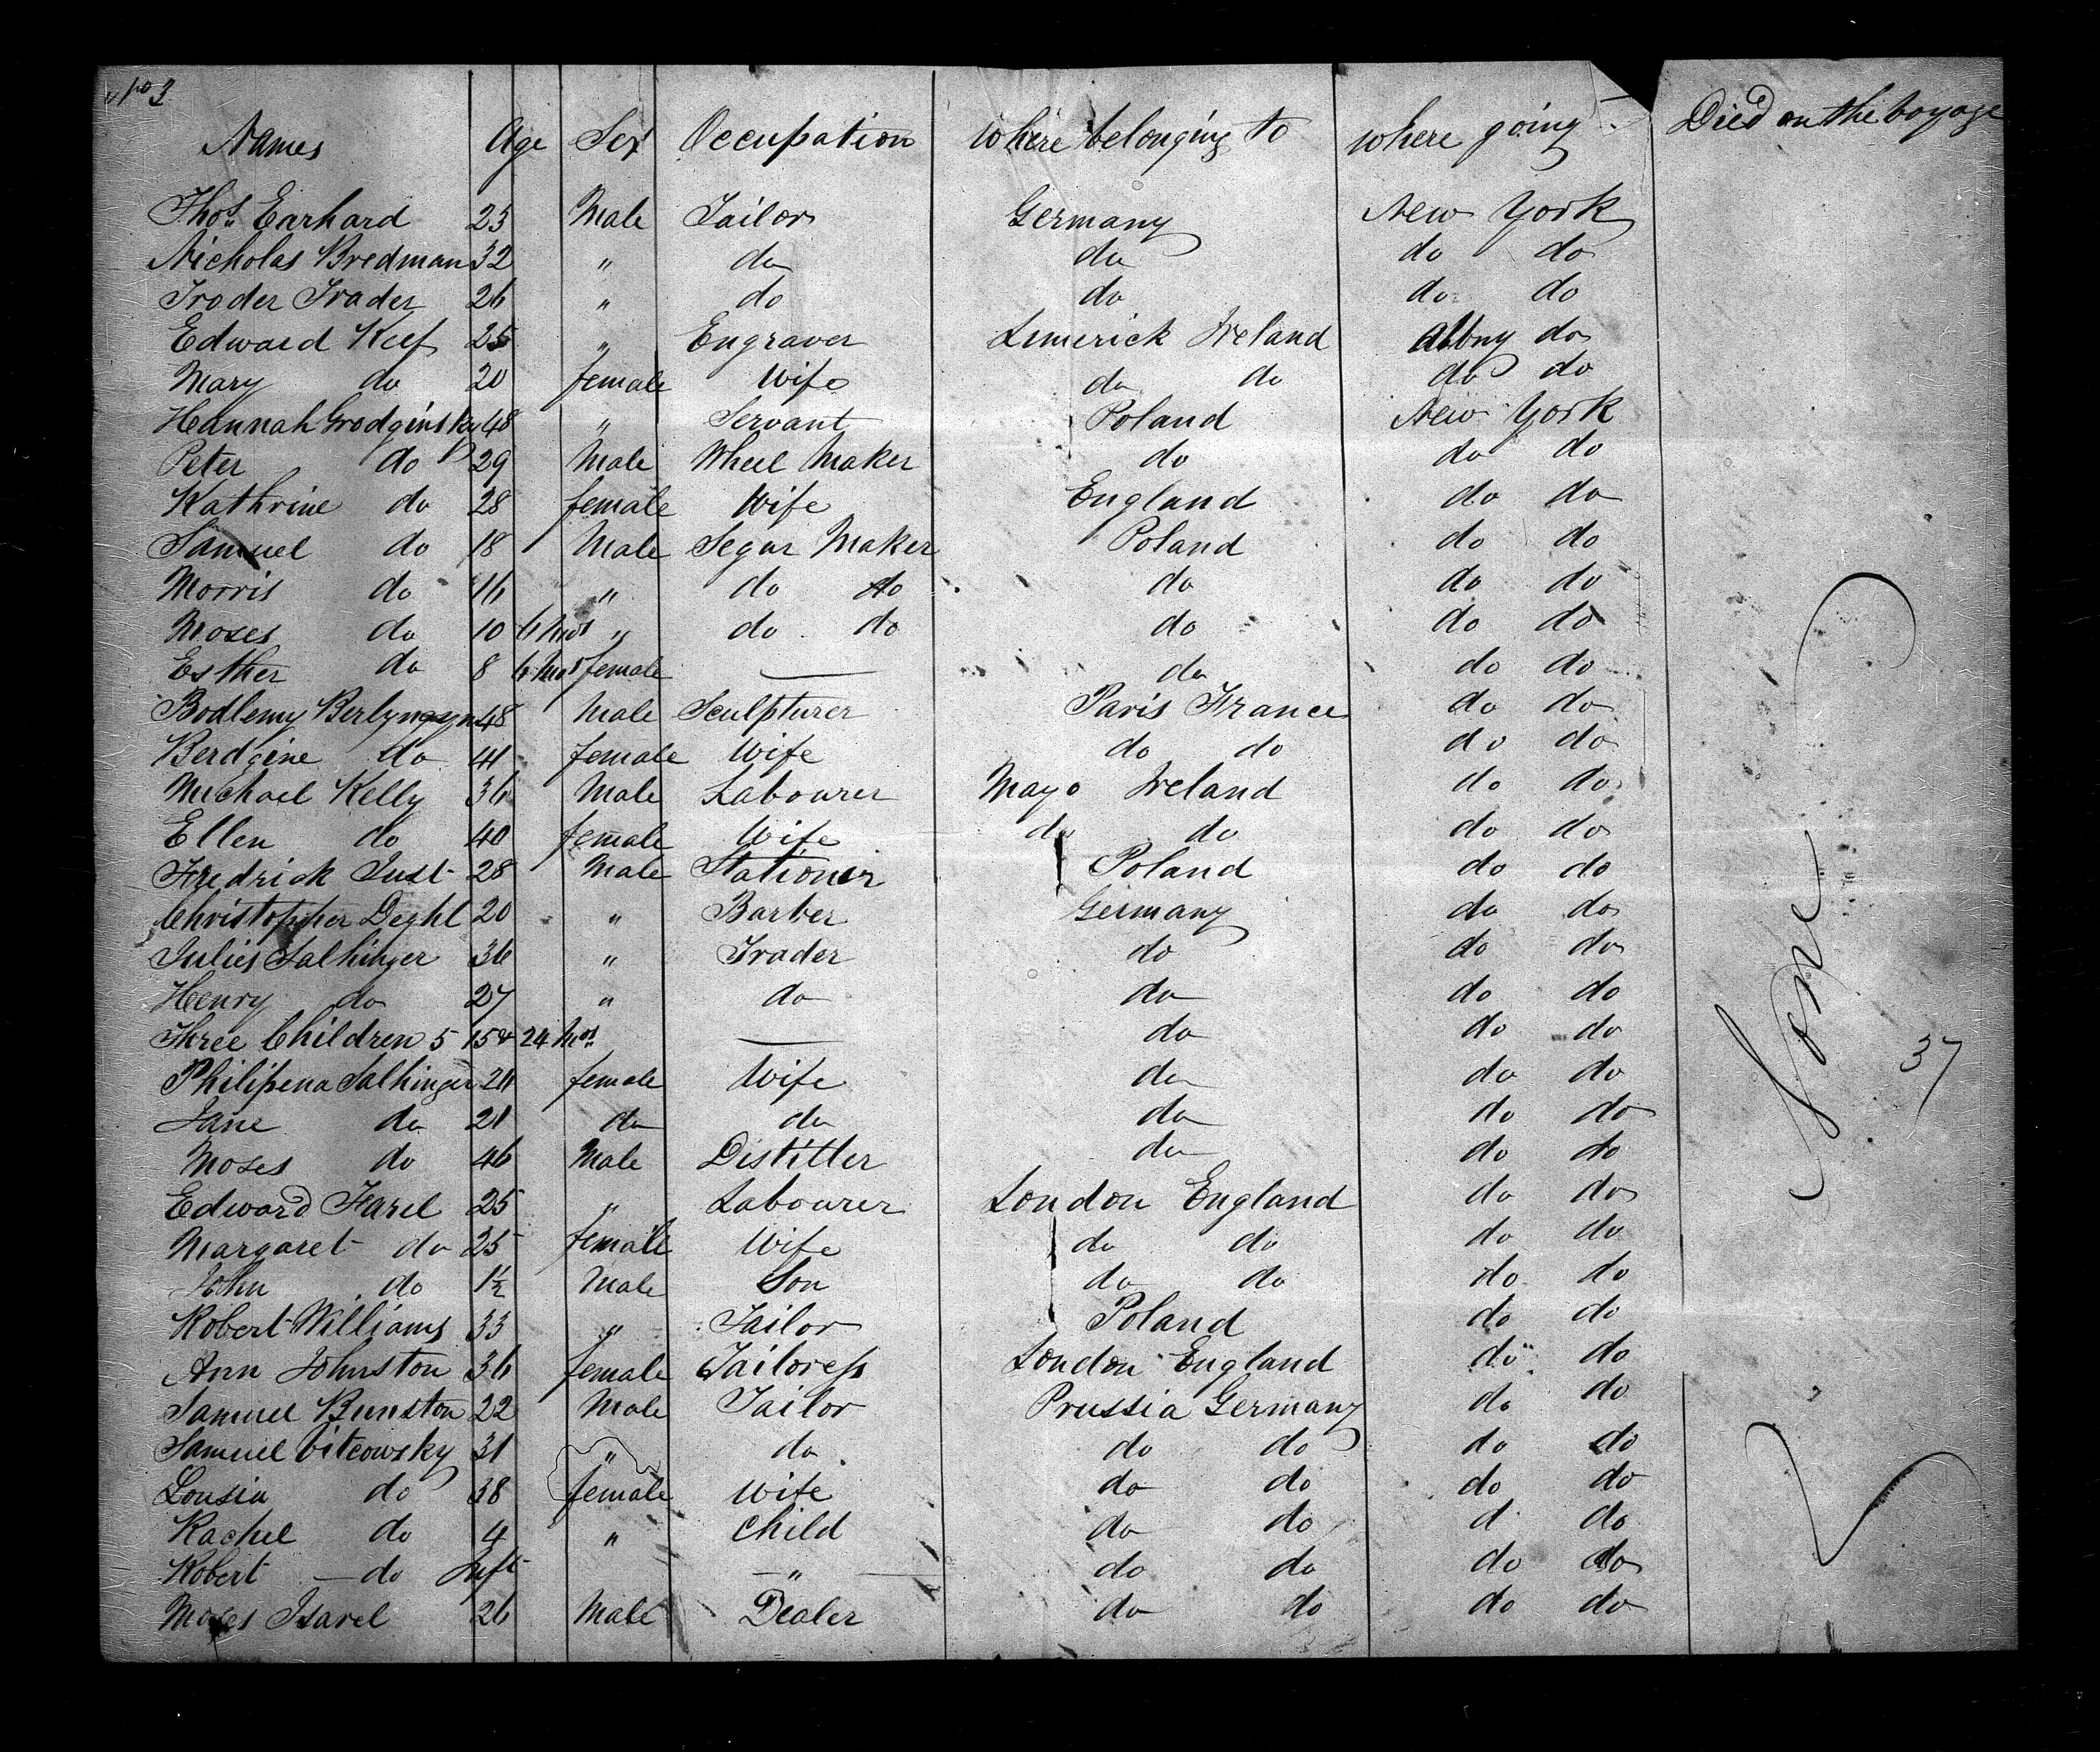 No 3
Names Age Sex Occupation Where belonging to where going Died on the voyage
Thos. Earhard 25 Male Tailor Germany New York
Nicholas Bredman 32 " do do do do
Troder Trader 26 " do do do do
Edward Keef 25 " Engraver Limerick Ireland Albny do
Mary do 20 female Wife do do do do
Hannah Grodginsky 48 " Servant Poland New York
Peter do 29 Male Wheel Maker do do do
Kathrine do 28 female Wife England do do
Samuel do 18 Male Segar Maker Poland do do
Morris do 16 " do do do do do
Moses do 10 6 mos " do do do do do
Esther do 8 6 mos female — do do do
Bodlemy Berlyngyn 48 Male Sculpturer Paris France do do
Berdgine do 41 female Wife do do do do
Michael Kelly 36 Male Labourer Mayo Ireland do do
Ellen do 40 female Wife do do do do
Fredrick Just 28 Male Stationer Poland do do
Christopher Deghl 20 " Barber Germany do do
Julies Salhinger 36 " Trader do do do
Henry do 27 " do do do do
Three Children 5 15 & 24 mos — do do do
Philipena Salhinger 24 female Wife do do do
Jane do 21 do do do do do
Moses do 46 Male Distiller do do do
Edward Farel 25 " Labourer London England do do
Margaret do 25 female Wife do do do do
John do 1½ Male Son do do do do
Robert Williams 33 " Tailor Poland do do
Ann Johnston 36 female Tailoress London England do do
Samuel Bunston 22 Male Tailor Prussia Germany do do
Samuel Vitcowsky 31 " do do do do do
Lousia do 38 female Wife do do do do
Rachel do 4 " Child do do d do
Robert — do Inft — " — do do do do
Moses Isarel 26 Male Dealer do do do do
None
37